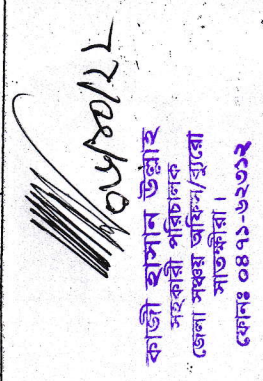 কাজী হাসান উল্লাহ
সহকারী পরিচালক
জেলা সঞ্চয় অফিস/ব্যুরো
সাতক্ষীরা।
ফোনঃ ০৪৭১-৬২৩১২